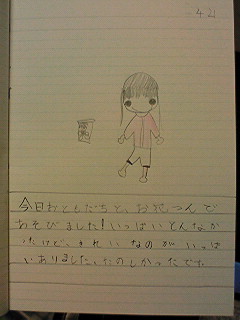 4.21
今日おともだちと、お花つんで
あそびました!いっぱいとんなか
ったけど、きれいなのがいっぱ
いありました。たのしかったです。